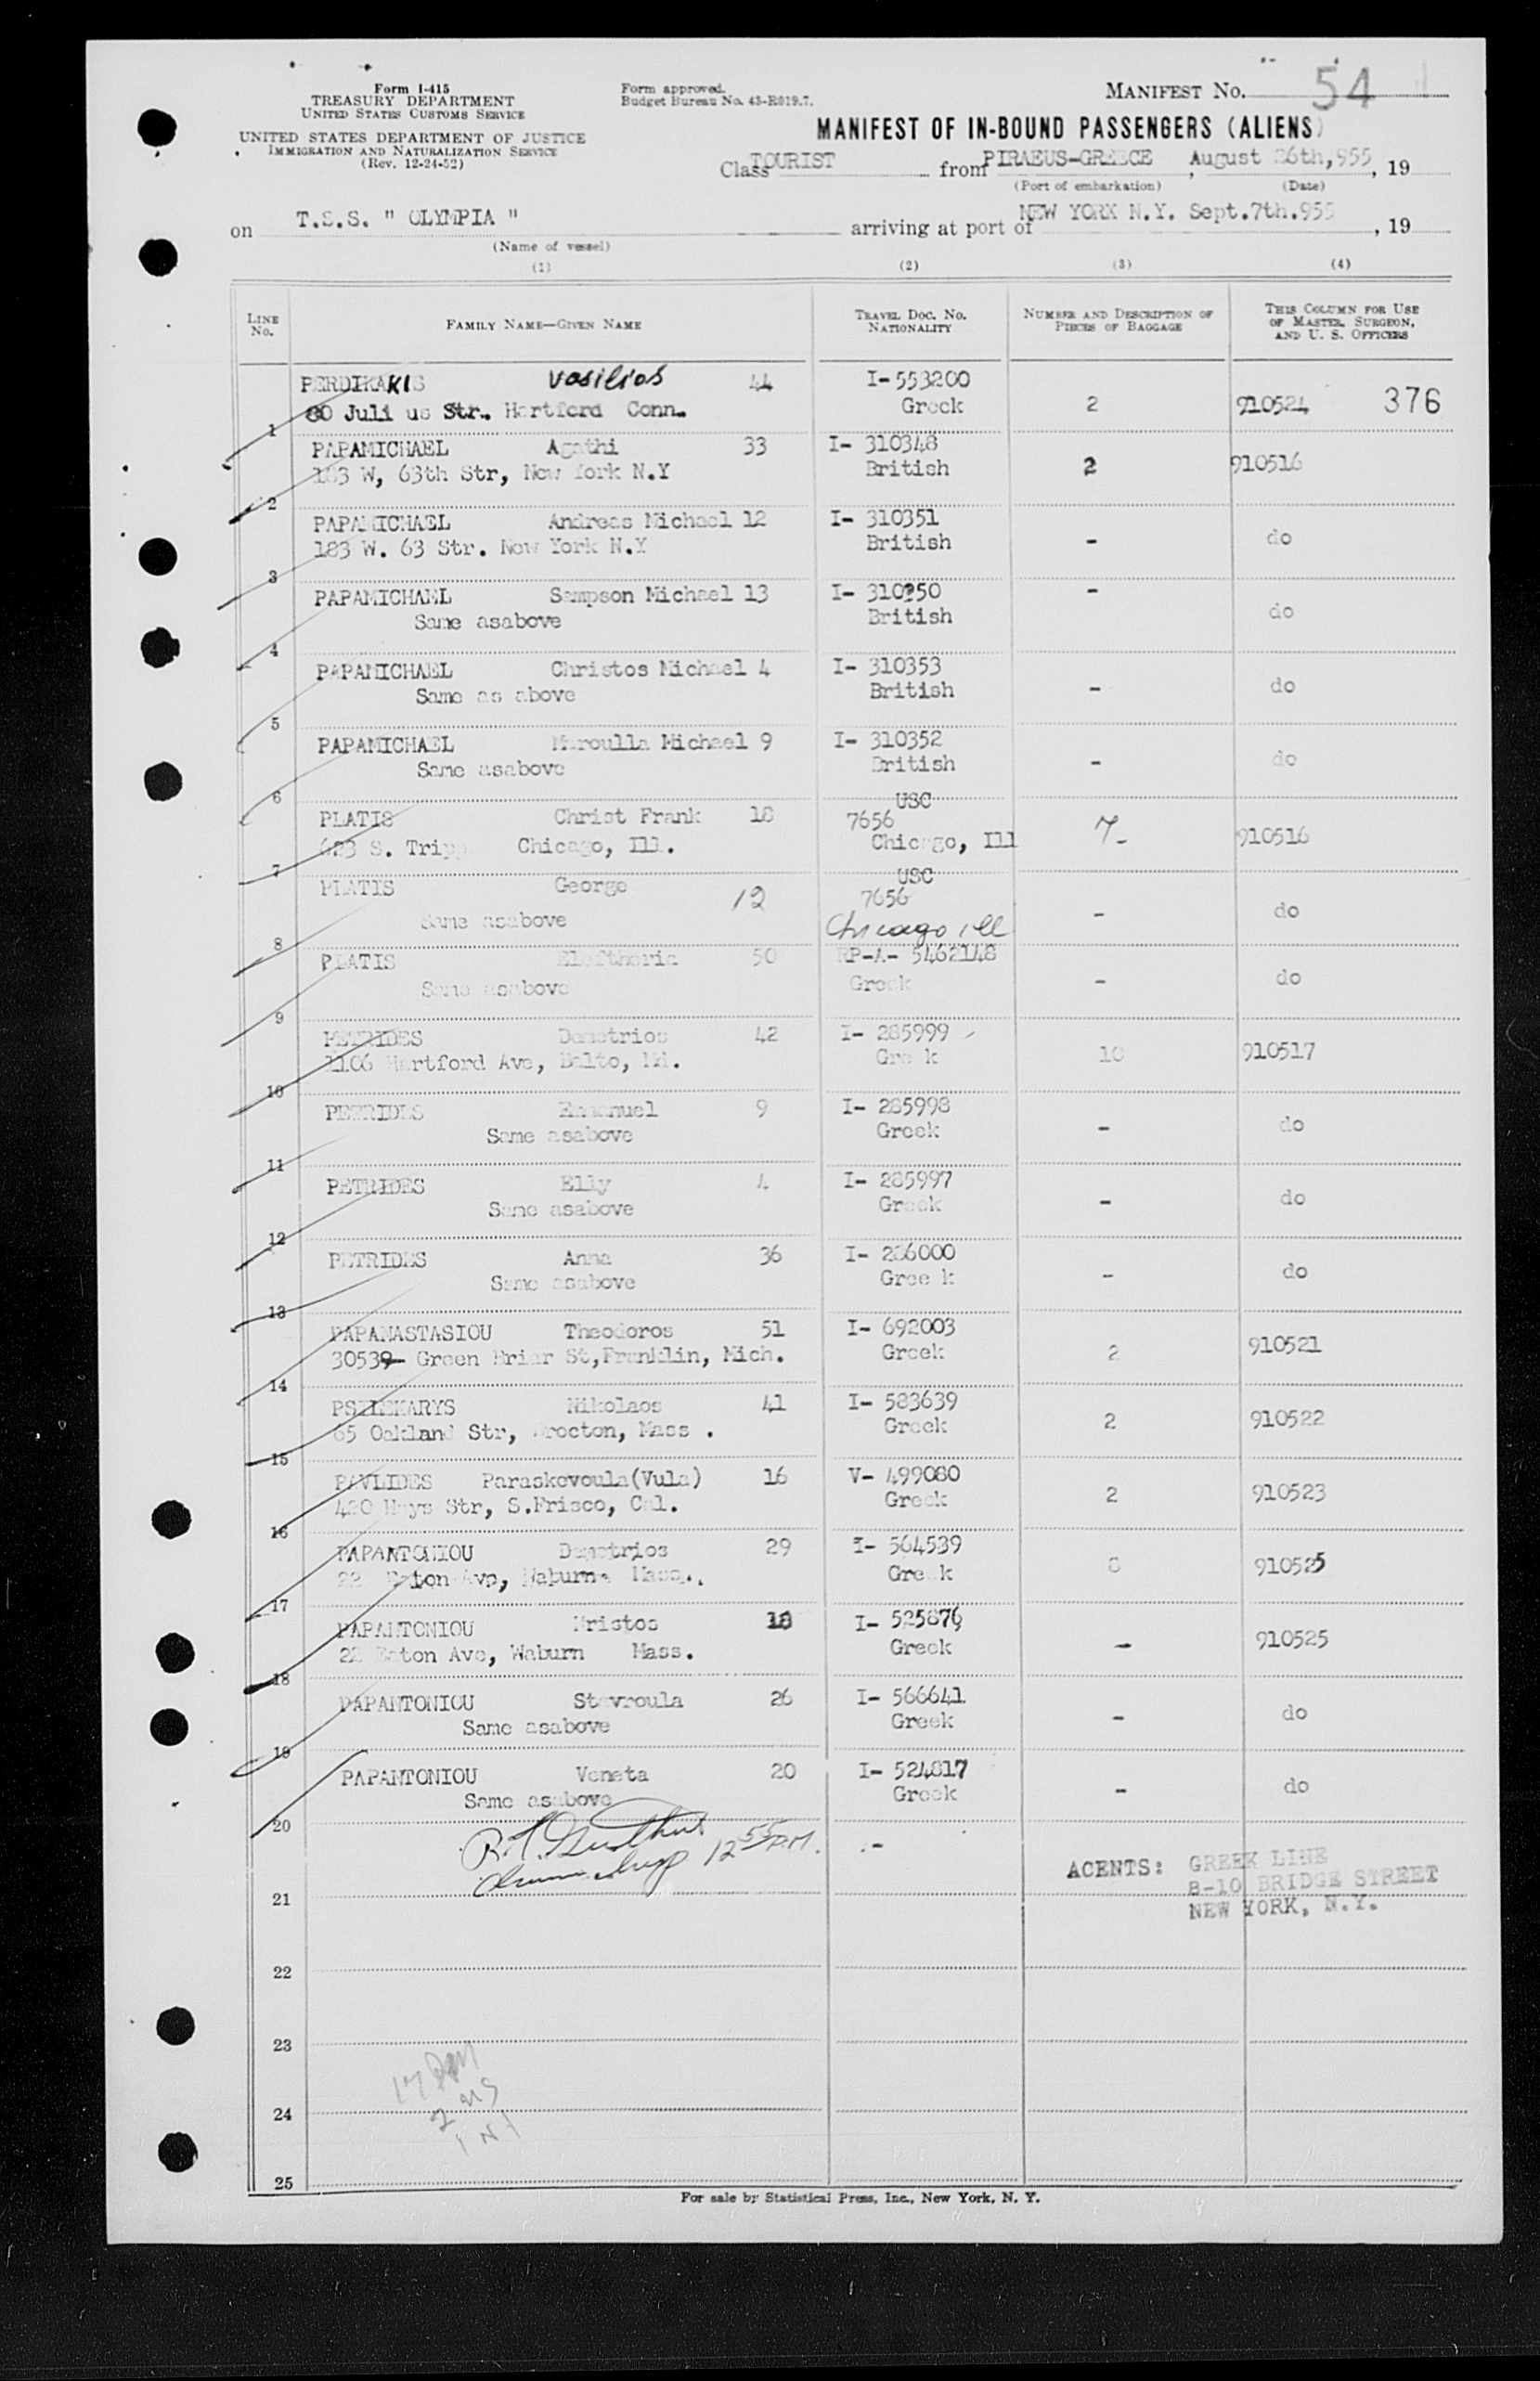 Form I-415
TREASURY DEPARTMENT
UNITED STATES CUSTOMS SERVICE
UNITED STATES DEPARTMENT OF JUSTICE
IMMIGRATION AND NATURALIZATION SERVICE
(Rev. 12-24-52)
Form approved.
Budget Bureau No. 43-R019.7.
MANIFEST NO. 54
MANIFEST OF IN-BOUND PASSENGERS (ALIENS)
Class TOURIST from PIRAEUS-GREECE, August 26th,955, 19
(Port of embarkation) (Date)
on T.S.S. " OLYMPIA " arriving at port of NEW YORK N.Y. Sept.7th.955, 19
(Name of vessel)
(1) (2) (3) (4)
LINE No. FAMILY NAME—GIVEN NAME TRAVEL DOC. NO. NATIONALITY NUMBER AND DESCRIPTION OF PIECES OF BAGGAGE THIS COLUMN FOR USE OF MASTER, SURGEON, AND U. S. OFFICERS
PERDIKAKIS Vasilios 44 I-553200
60 Juli us Str. Hartford Conn. Greek 2 910524 376
1
PAPAMICHAEL Agathi 33 I- 310348
183 W, 63th Str, New York N.Y British 2 910516
2
PAPAMICHAEL Andreas Michael 12 I- 310351
183 W. 63 Str. New York N.Y British - do
3
PAPAMICHAEL Sampson Michael 13 I- 310350 -
Same asabove British do
4
PAPAMICHAEL Christos Michael 4 I- 310353
Same as above British - do
5
PAPAMICHAEL Maroulla Michael 9 I- 310352
Same asabove British - do
6 USC
PLATIS Christ Frank 18 7656
623 S. Tripp Chicago, Ill. Chicago, Ill 7- 910516
7 USC
PLATIS George 12 7656
Same asabove Chicago, ill - do
8
PLATIS Eleftheria 50 RP-A- 5462148
Same asabove Greek - do
9
PETRIDES Demetrios 42 I- 285999
1106 Hartford Ave, Balto, Md. Greek 10 910517
10
PETRIDES Emmanuel 9 I- 285998
Same asabove Greek - do
11
PETRIDES Elly 4 I- 285997
Same asabove Greek - do
12
PETRIDES Anna 36 I- 286000
Same asabove Gree k - do
13
PAPANASTASIOU Theodoros 51 I- 692003
30539- Green Briar St,Franklin, Mich. Greek 2 910521
14
Nikolaos 41 I- 583639
65 Oakland Str, Brocton, Mass . Greek 2 910522
15
PAVLIDES Paraskevoula(Vula) 16 V- 499080
420 Hays Str, S.Frisco, Cal. Greek 2 910523
16
PAPANTONIOU Demetrios 29 I- 564539
22 Eaton Ave, Waburn Mass. Greek 8 910525
17
PAPANTONIOU Hristos 18 I- 525876
22 Eaton Ave, Waburn Mass. Greek - 910525
18
PAPANTONIOU Stavroula 26 I- 566641
Same asabove Greek - do
19
PAPANTONIOU Veneta 20 I- 524817
Same asabove Greek - do
20
12 55 P.M. .-
AGENTS: GREEK LINE
8-10 BRIDGE STREET
NEW YORK, N.Y.
21
22
23
24
25
For sale by Statistical Press, Inc., New York, N. Y.